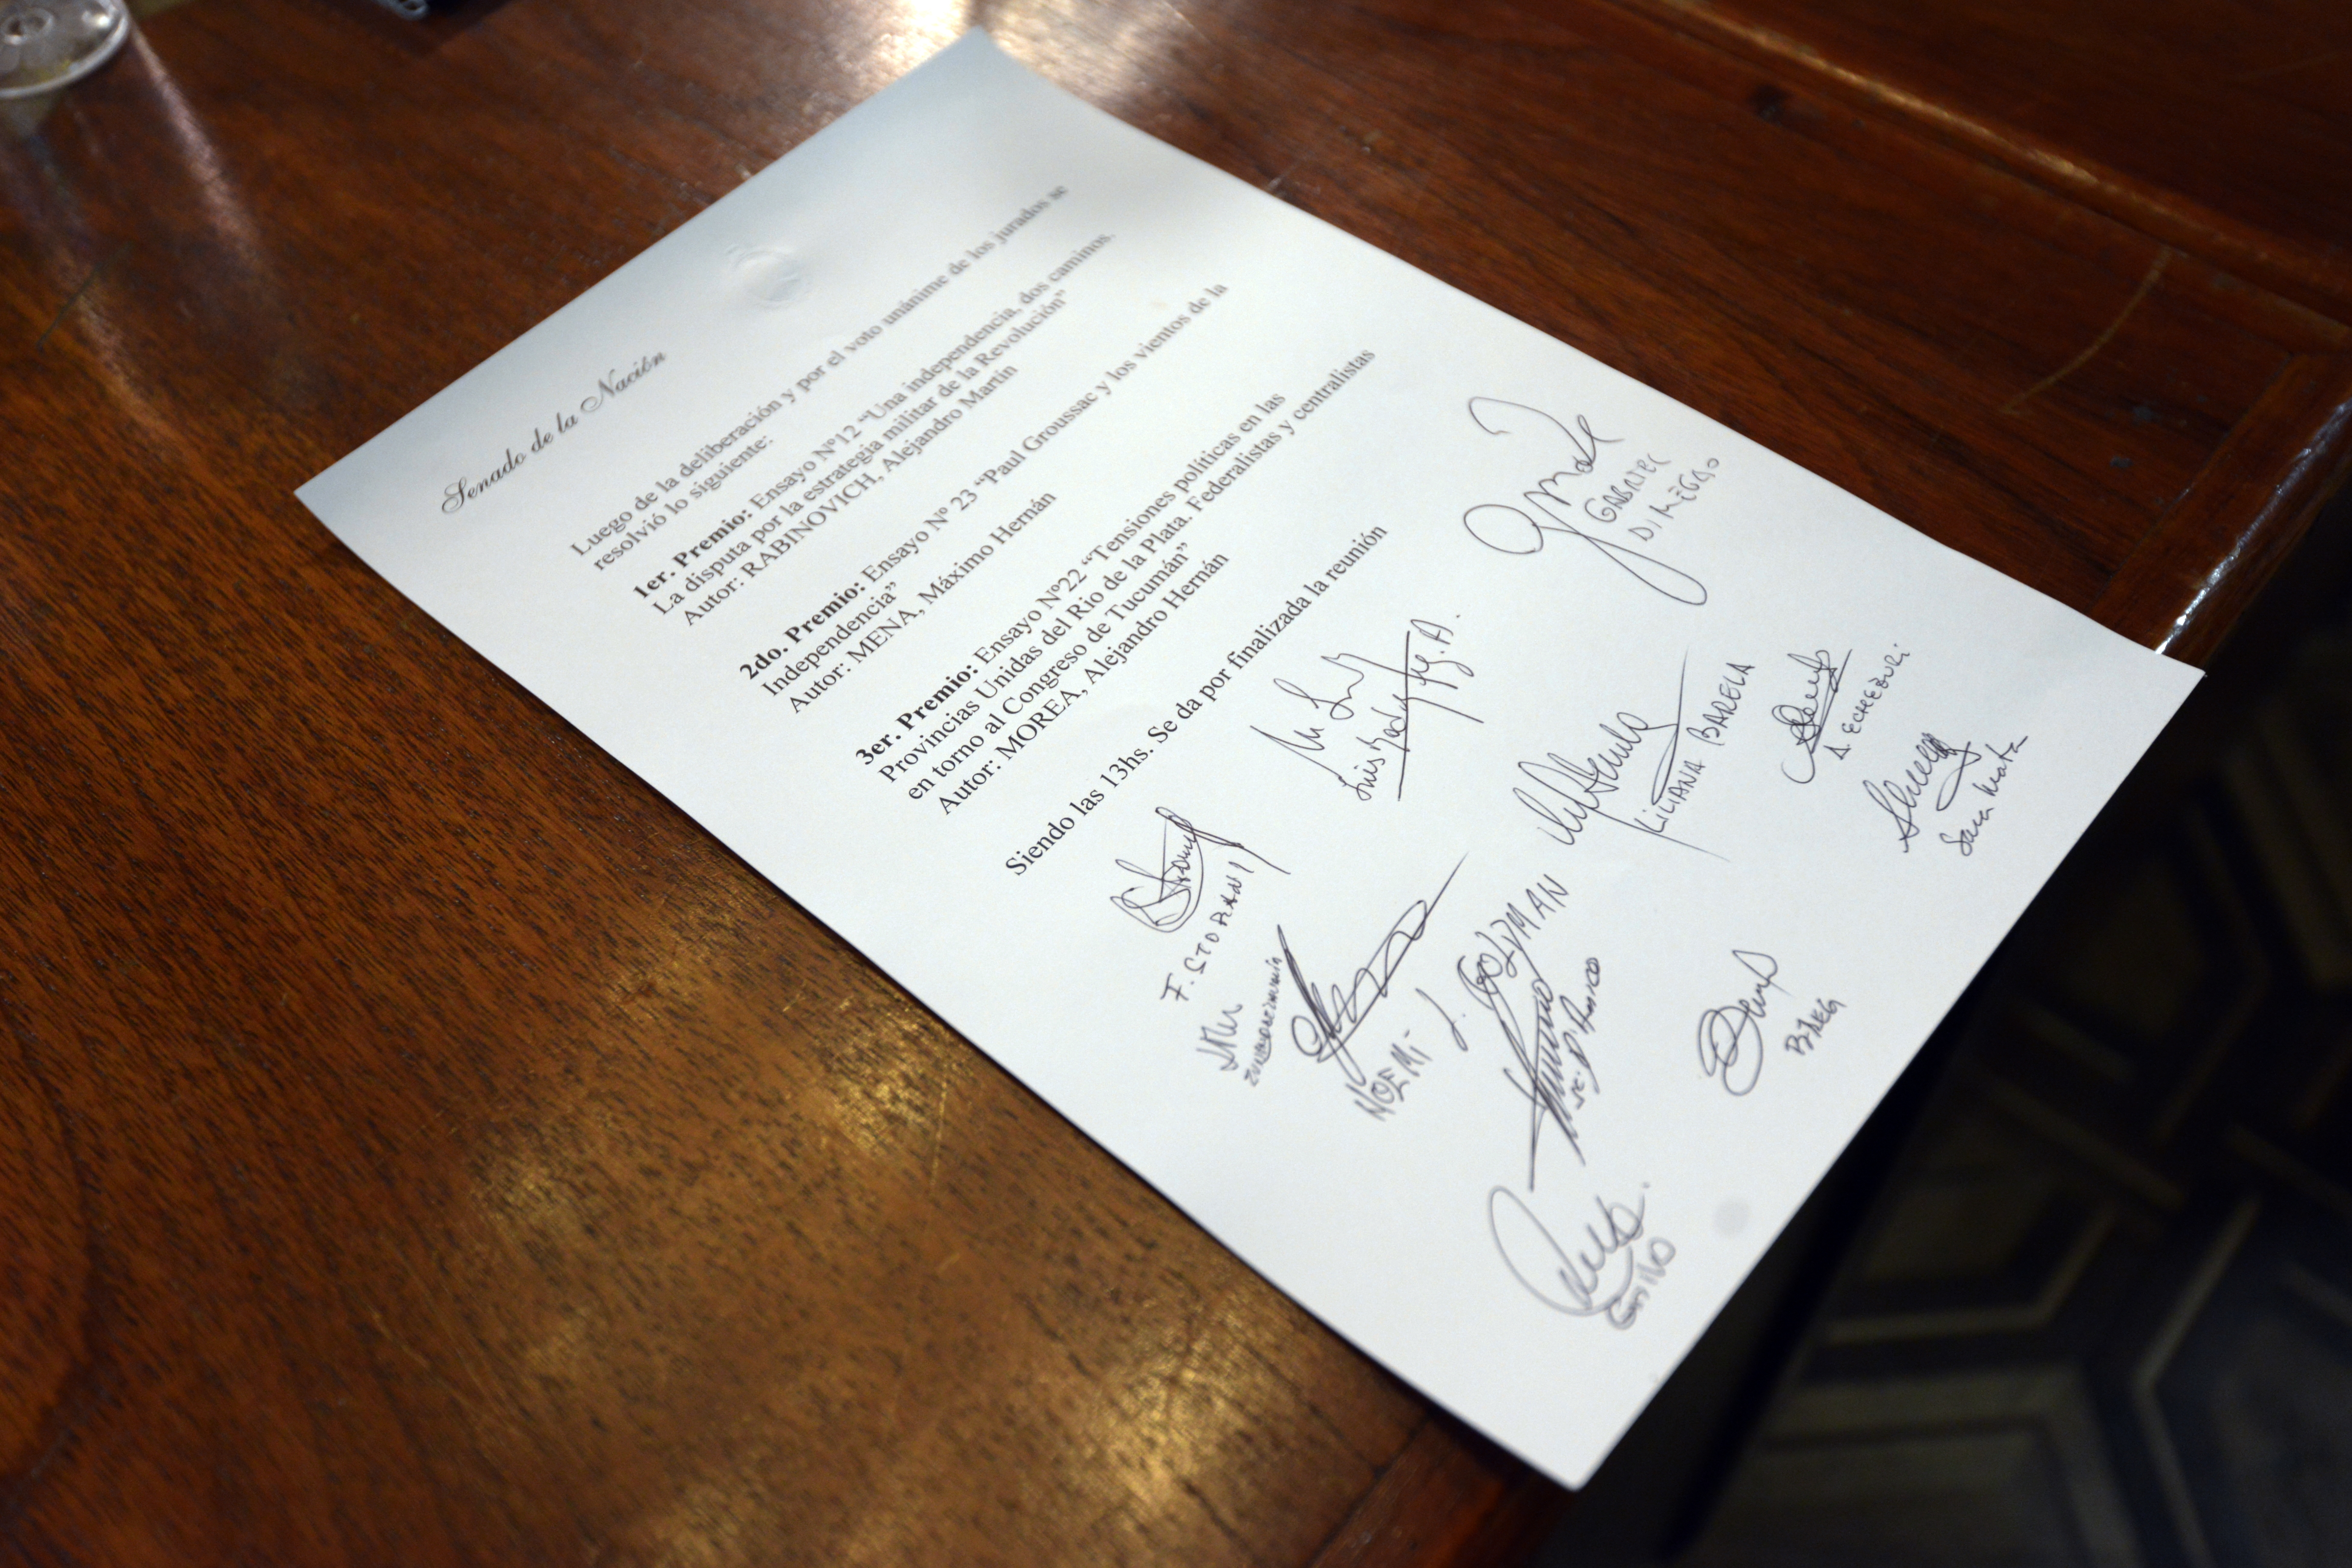 Senado de la Nación
Luego de la deliberación y por el voto unánime de los jurados se
resolvió lo siguiente:
1er. Premio: Ensayo Nº12 “Una independencia, dos caminos.
La disputa por la estrategia militar de la Revolución”
Autor: RABINOVICH, Alejandro Martin
2do. Premio: Ensayo Nº 23 “Paul Groussac y los vientos de la
Independencia”
Autor: MENA, Máximo Hernán
3er. Premio: Ensayo Nº22 “Tensiones políticas en las
Provincias Unidas del Rio de la Plata. Federalistas y centralistas
en torno al Congreso de Tucumán”
Autor: MOREA, Alejandro Hernán
Siendo las 13hs. Se da por finalizada la reunión
GABRIEL
DI MEGLIO
LILIANA BARELA
Sara Mata
F. STORANI
NOEMÍ GOLDMAN